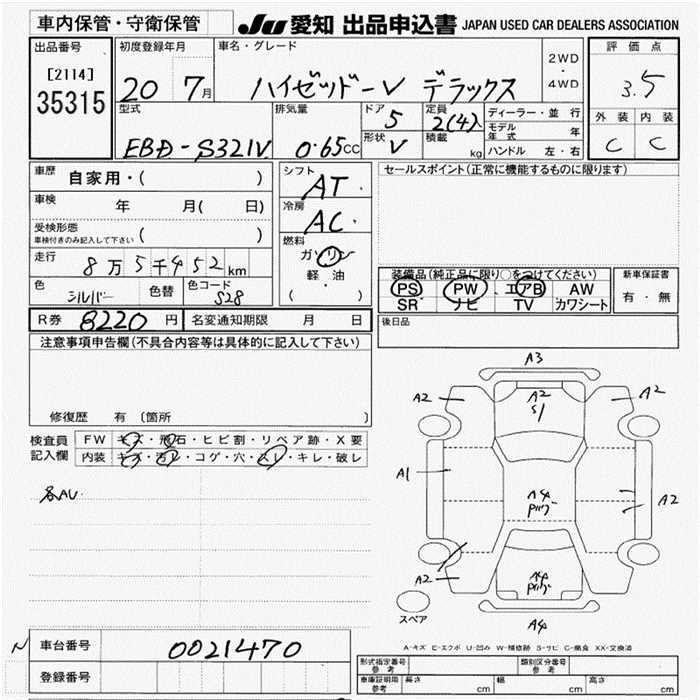 車内保管・守衛保管
JU 愛知 出品申込書 JAPAN USED CAR DEALERS ASSOCIATION
出品番号
[2114]
35315
初度登録年月
20 7月
車名・グレード
ハイゼットバーV デラックス
2WD
・
4WD
評価点
3.5
外装 内装
C C
型式
EBD-S321V
排気量
0.65cc
ドア 5
形状 V
定員 2(4)
積載 kg
ディーラー・並行
モデル年式 年
ハンドル 左・右
車歴 自家用・( )
車検 年 月( 日)
受検形態
車検付きのみ記入して下さい ( )
走行 8万5千452km
色 シルバー 色替 色コード S28
R券 8220円 名変通知期限 月 日
シフト AT
冷房 AC
燃料
ガソリン
軽・油
( ・ )
セールスポイント(正常に機能するものに限ります)
装備品(純正品に限り○をつけてください)
PS PW エアB AW
SR ナビ TV カワシート
新車保証書
有・無
後日品
注意事項申告欄(不具合内容等は具体的に記入して下さい)
修復歴 有 〔箇所 〕
検査員
記入欄
FW キズ・飛石・ヒビ割・リペア跡・X要
内装 キズ・汚レ・コゲ・穴・スレ・キレ・破レ
各AU
A3
A2
A2
S1
A2
A1
A4
Pパリ
A2
A2
A4
Pパリ
A4
スペア
A-キズ E-エクボ U-凹み W-補修跡 S-サビ C-腐食 XX-交換済
N
車台番号 0021470
登録番号
形式指定番号
参考
類別区分番号
参考
車庫証明用
参考
長さ cm 幅 cm 高さ cm